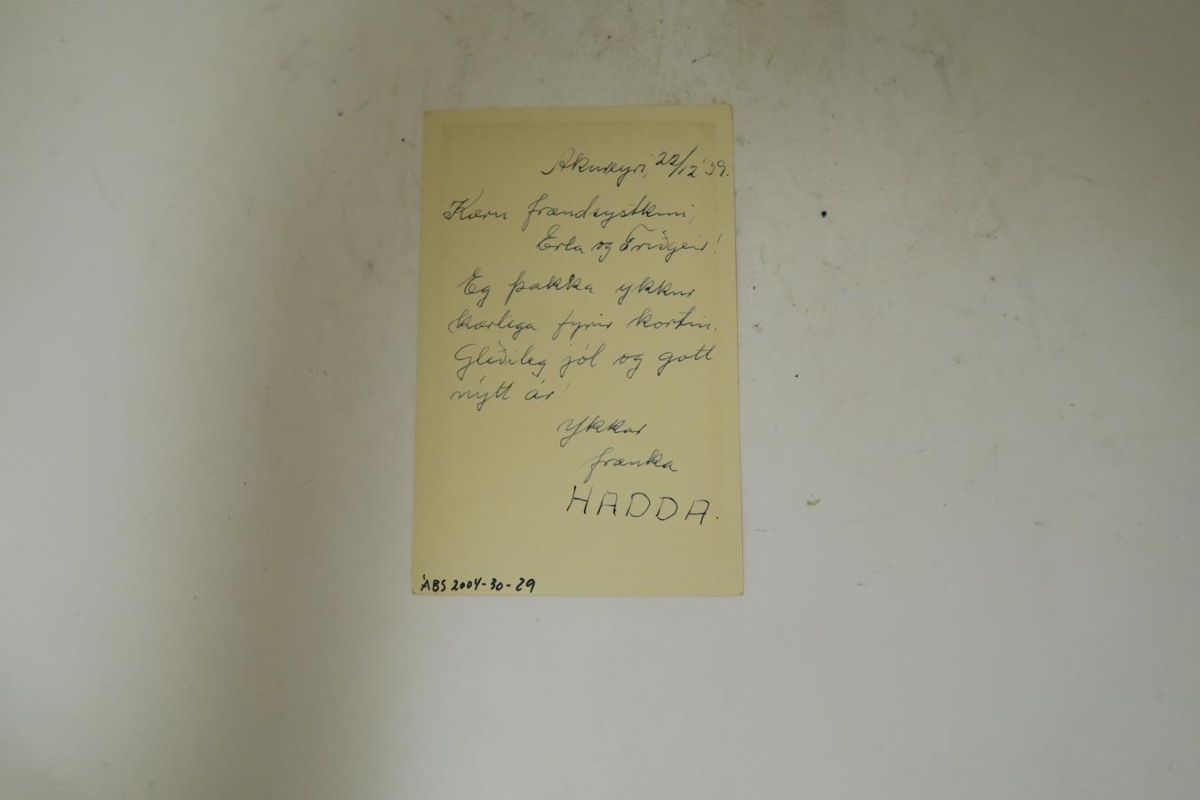 Akureyri, 22/12 '39.
Kæru frændsystkini,
Erla og Friðgeir!
Eg þakka ykkur
kærlega fyrir kortin.
Gleðileg jól og gott
nýtt ár!
Ykkar
frænka
HADDA.
ÁBS 2004-30-29